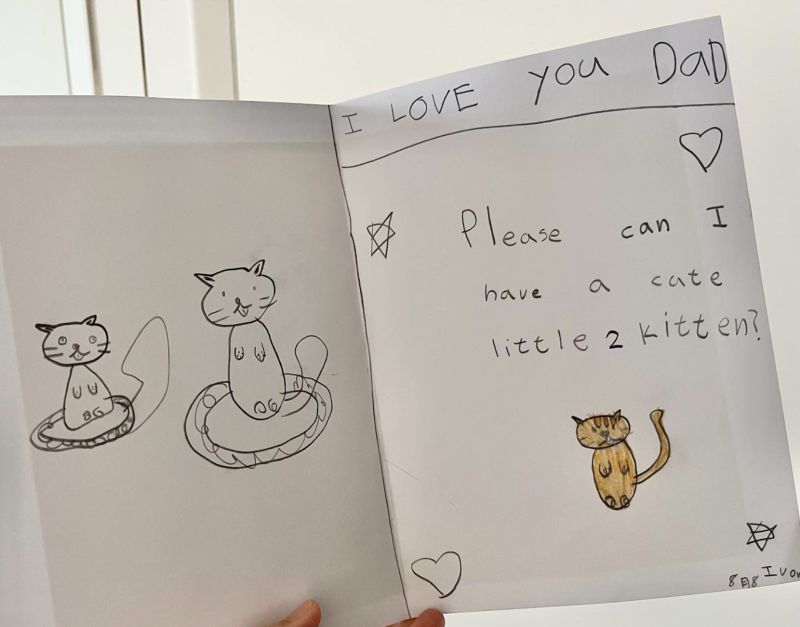 I LOVE YOU DaD
Please can I
have a cate
little 2 kitten?
8月8